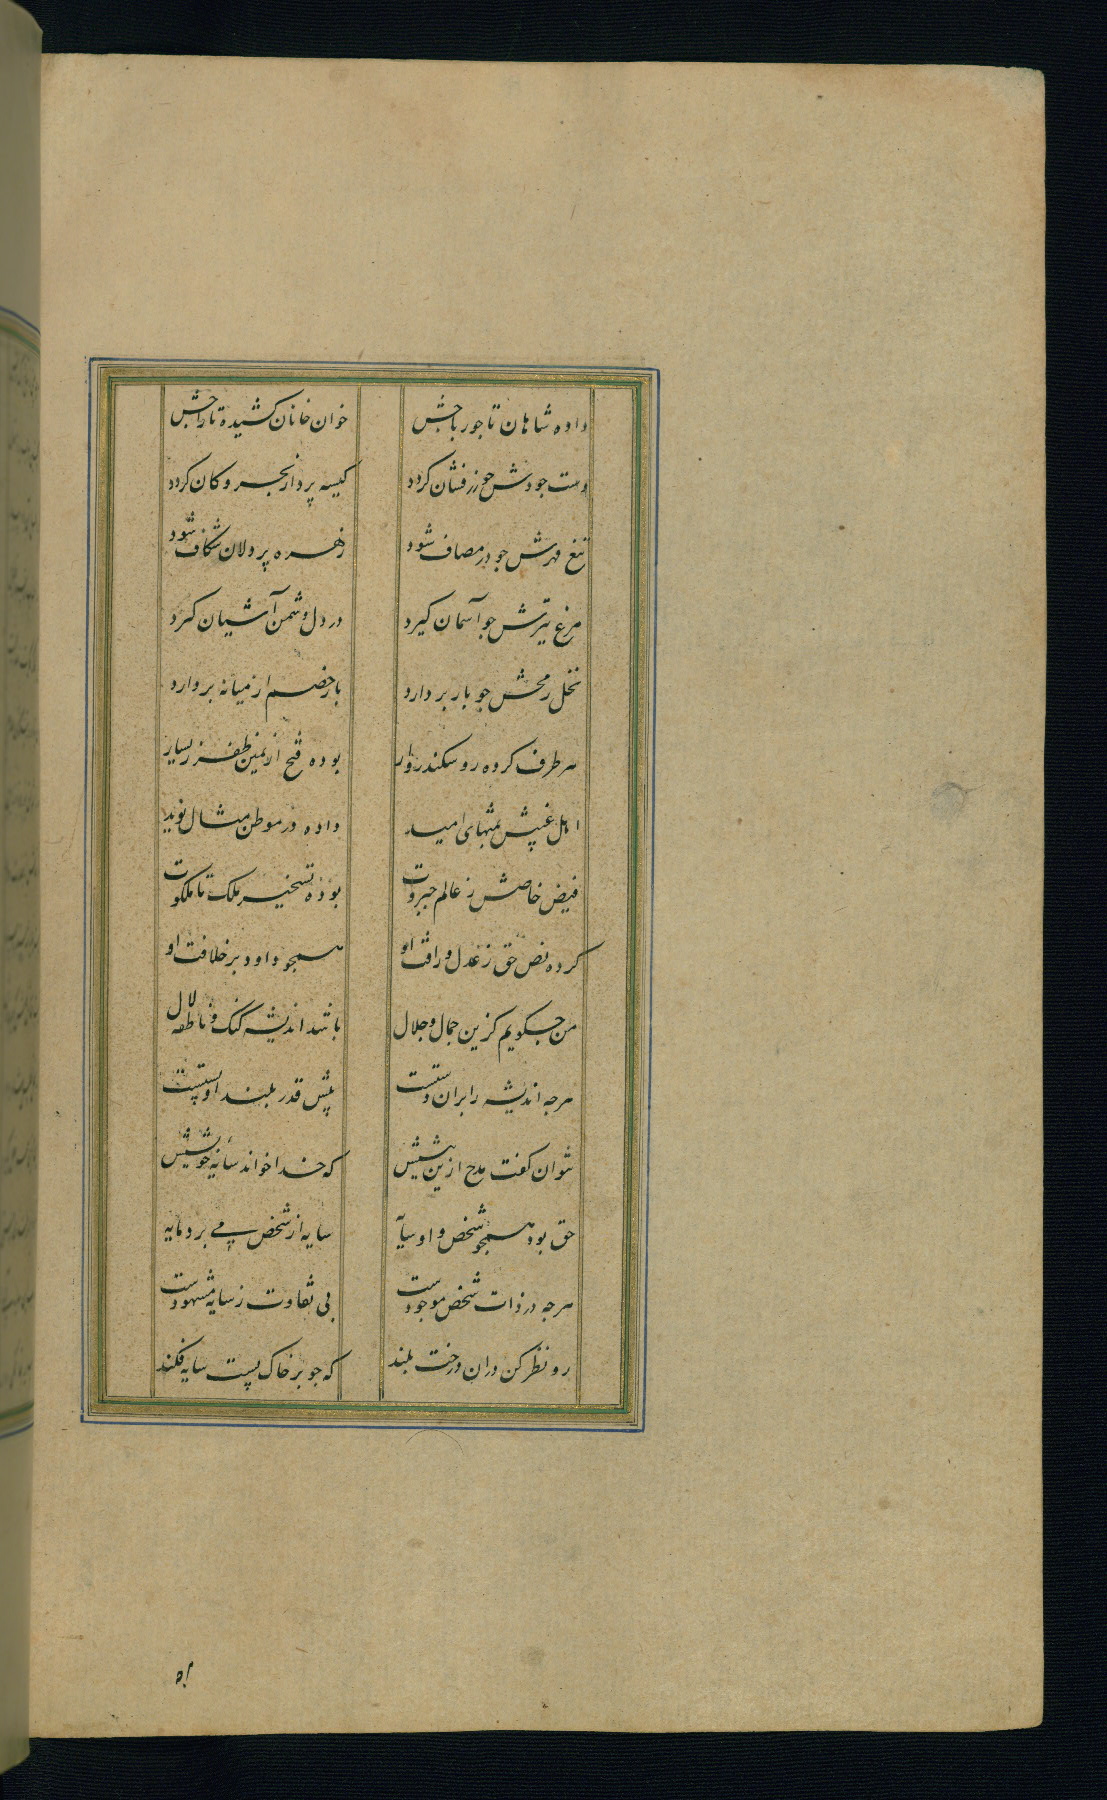 داده شاهان تاجور باجش خوان خانان کشیده تاراجش
دست جودش چو زرفشان کردد کیسه پرداز بحر و کان کردد
تیغ قهرش جو در مصاف شود زهره پردلان شکاف شود
مرغ تیرش جو آسمان کیرد در دل دشمن آشیان کیرد
نخل رمحش جو بار بردارد بار خصم از میانه بردارد
هر طرف کرده رو سکندروار بوده فتح از یمین ظفر ز یسار
اهل غیبش بمنتهای امید داده در موطن مثال نوید
فیض خاصش ز عالم جبروت بوده تسخیر ملک تا ملکوت
کرده نص حق ز عدل و رافت او همجو داود بر خلافت او
من جکویم کزین جمال و جلال باشد اندیشه کنک و ناطقه لال
هرجه اندیشه را بران دستست پیش قدر بلند او پستست
نتوان کفت مدح ازین بیشش که خدا خواند سایه خویشش
حق بود همجو شخص و او سایه سایه از شخص می برد مایه
هرجه در ذات شخص موجودست بی تفاوت ز سایه مشهودست
رو نظر کن دران درخت بلند که جو بر خاک پست سایه فکند